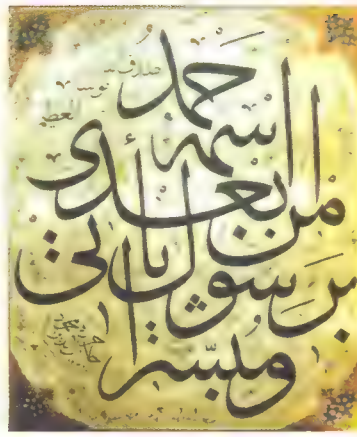 ومبشّرا
برسول يأتي
من بعدي
اسمه
احمد
العظيم